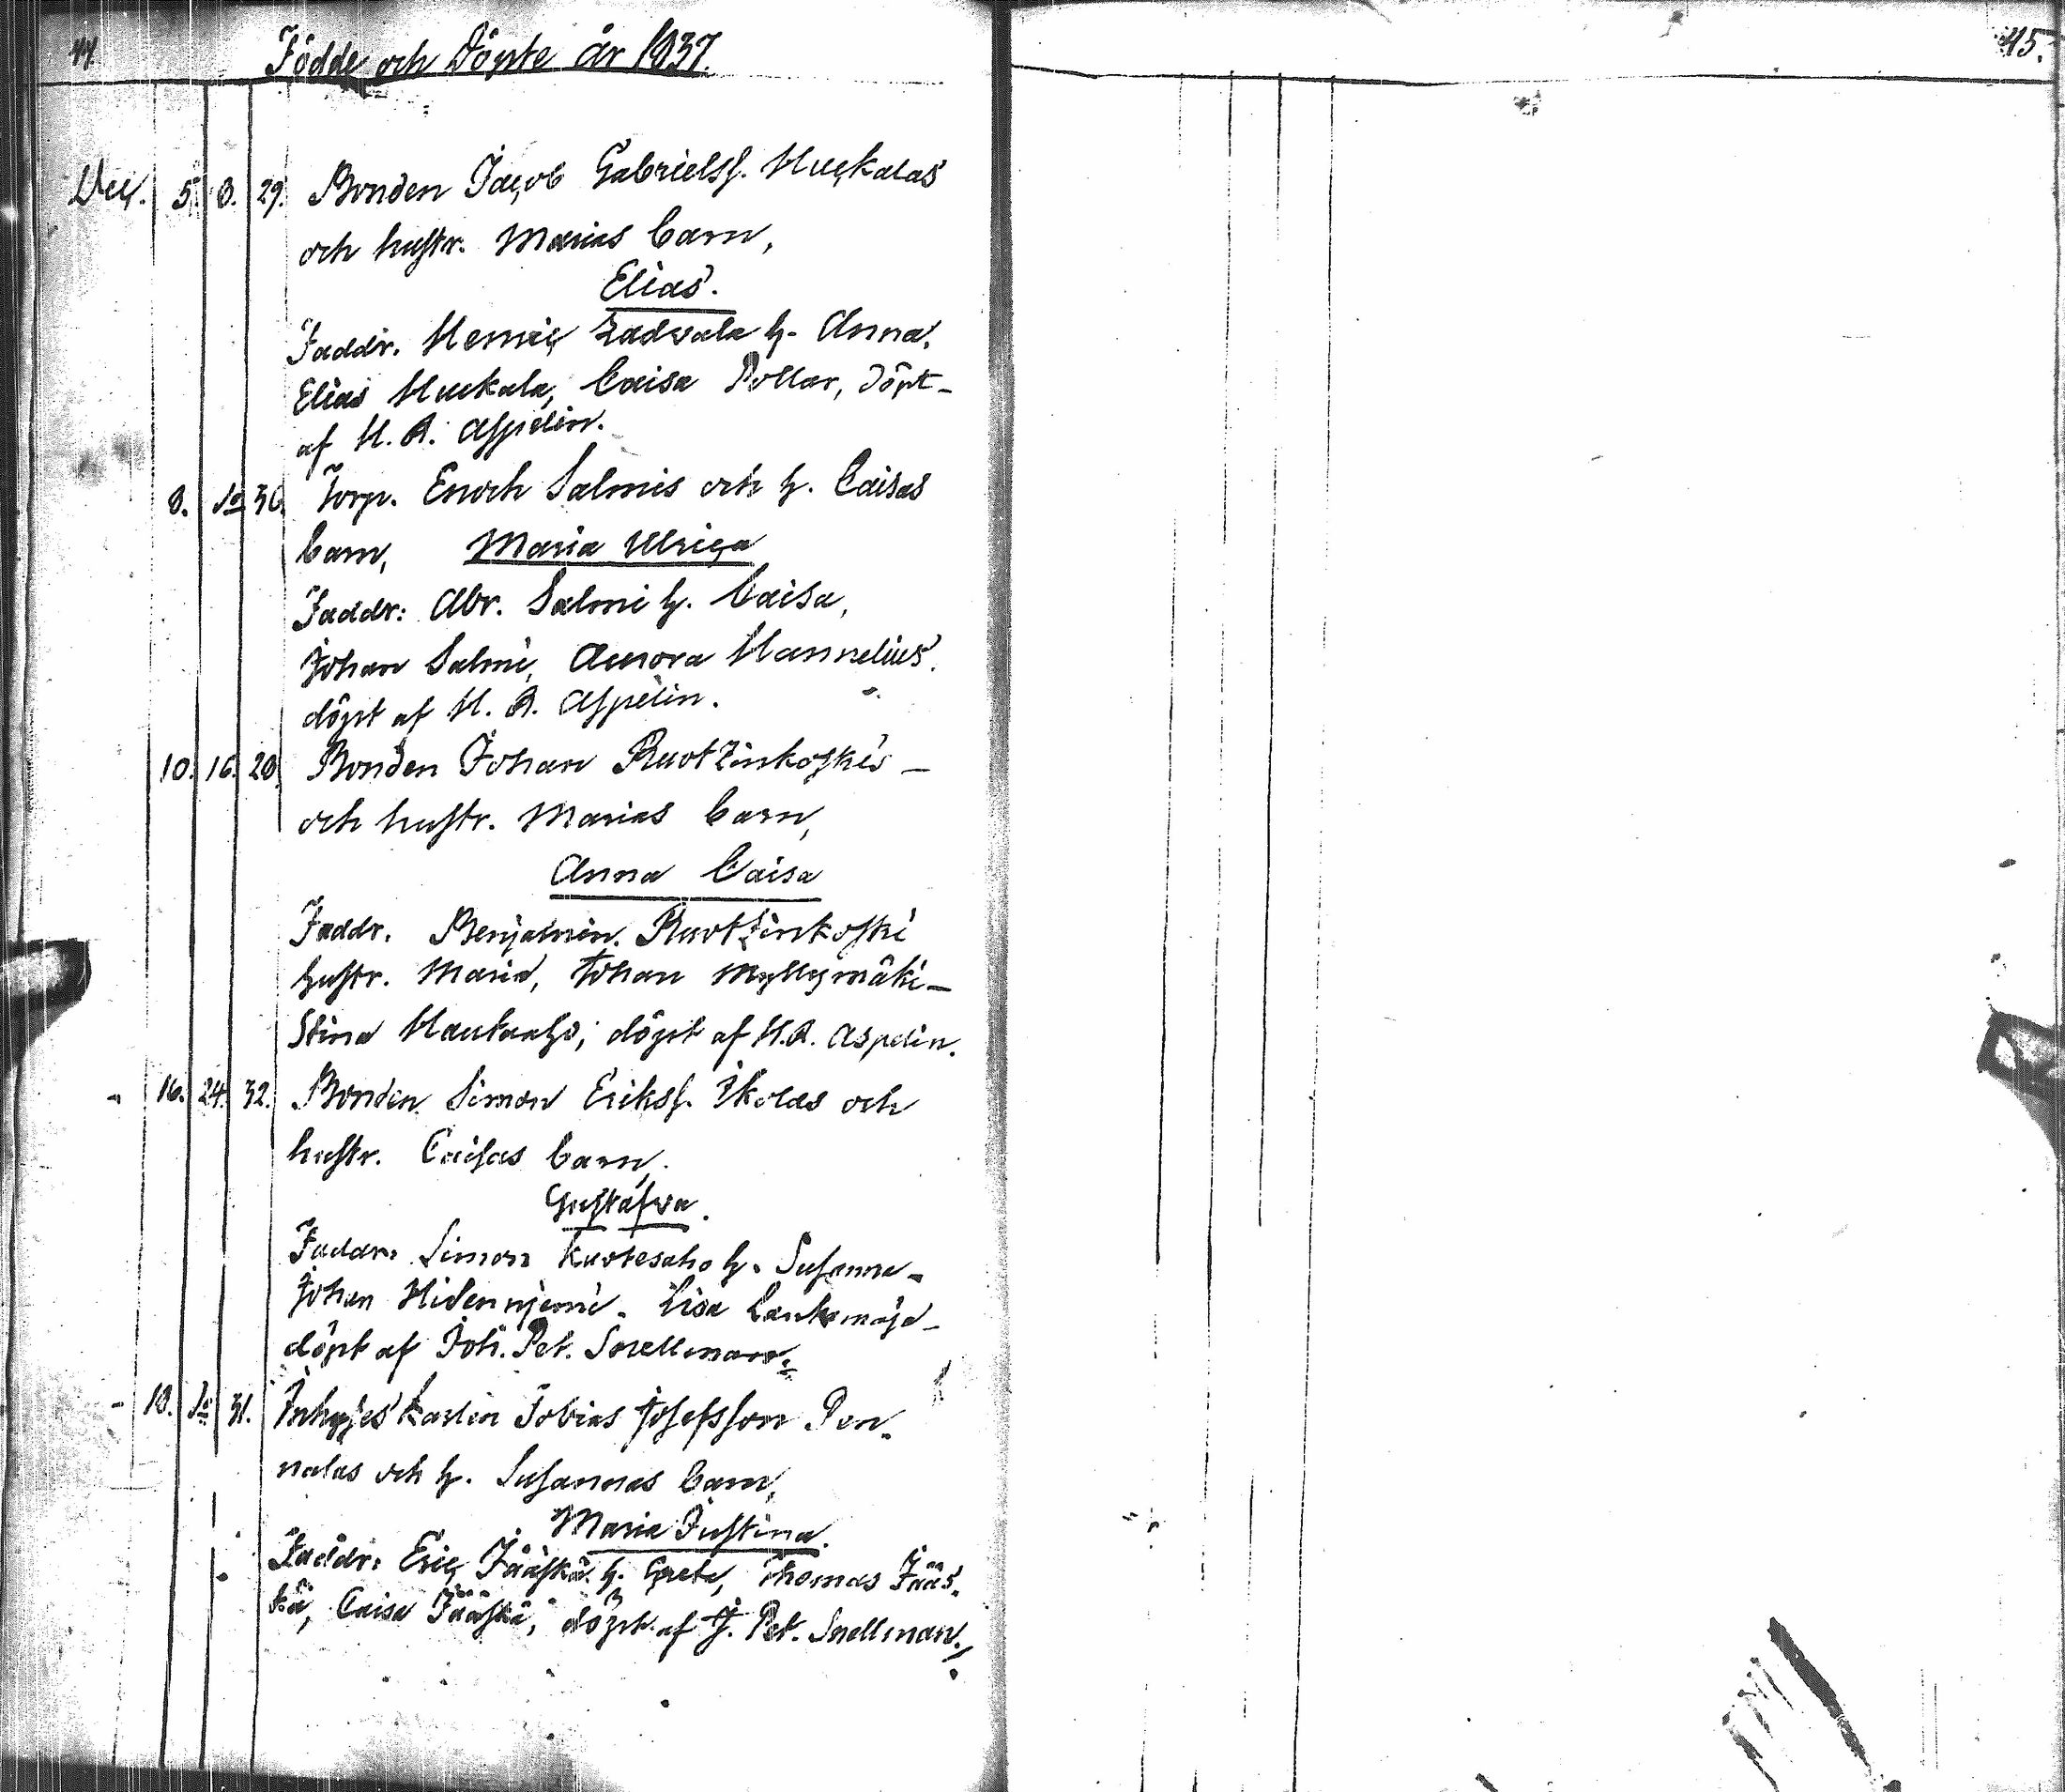 44.
Födde och Döpte år 1837.
45.
Dec. 5. 8. 29. Bonden Jacob Gabrielss. Huckalas
och hustr. Marias barn,
Elias.
Faddr. Henric Ladvala h. Anna,
Elias Huckala, Caisa Pollar, döpt
af H. R. Aspelin.
8. do 30. Torp. Enoch Salmis och h. Caisas
barn, Maria Ulrica
Faddr: Abr. Salmi h. Caisa,
Johan Salmi, Aurora Hannelius.
döpt af H. R. Aspelin.
10. 16. 28. Bonden Johan Ruotzinkoskis
och hustr. Marias barn,
Anna Caisa
Faddr. Benjamin Ruotzinkoski
hustr. Maria, Johan Myllymäki
Stina döpt af H. R. Aspelin.
16. 24. 32. Bonden Simon Erikss. Ikolas och
hustr. Caisas barn,
Gustafva.
Faddr: Simon Kuotesaho h. Susanna
Johan Hidenniemi. Lisa
döpt af Joh. Pet. Snellman.
18. do 31. Inhyses Karlen Tobias Josefsson Pen-
nalas och h. Susannas barn,
Maria Justina.
Faddr: Eric Jääskä h. Greta, Thomas Jääs-
kä, Caisa Jääskä, döpt af J. Pet. Snellman.